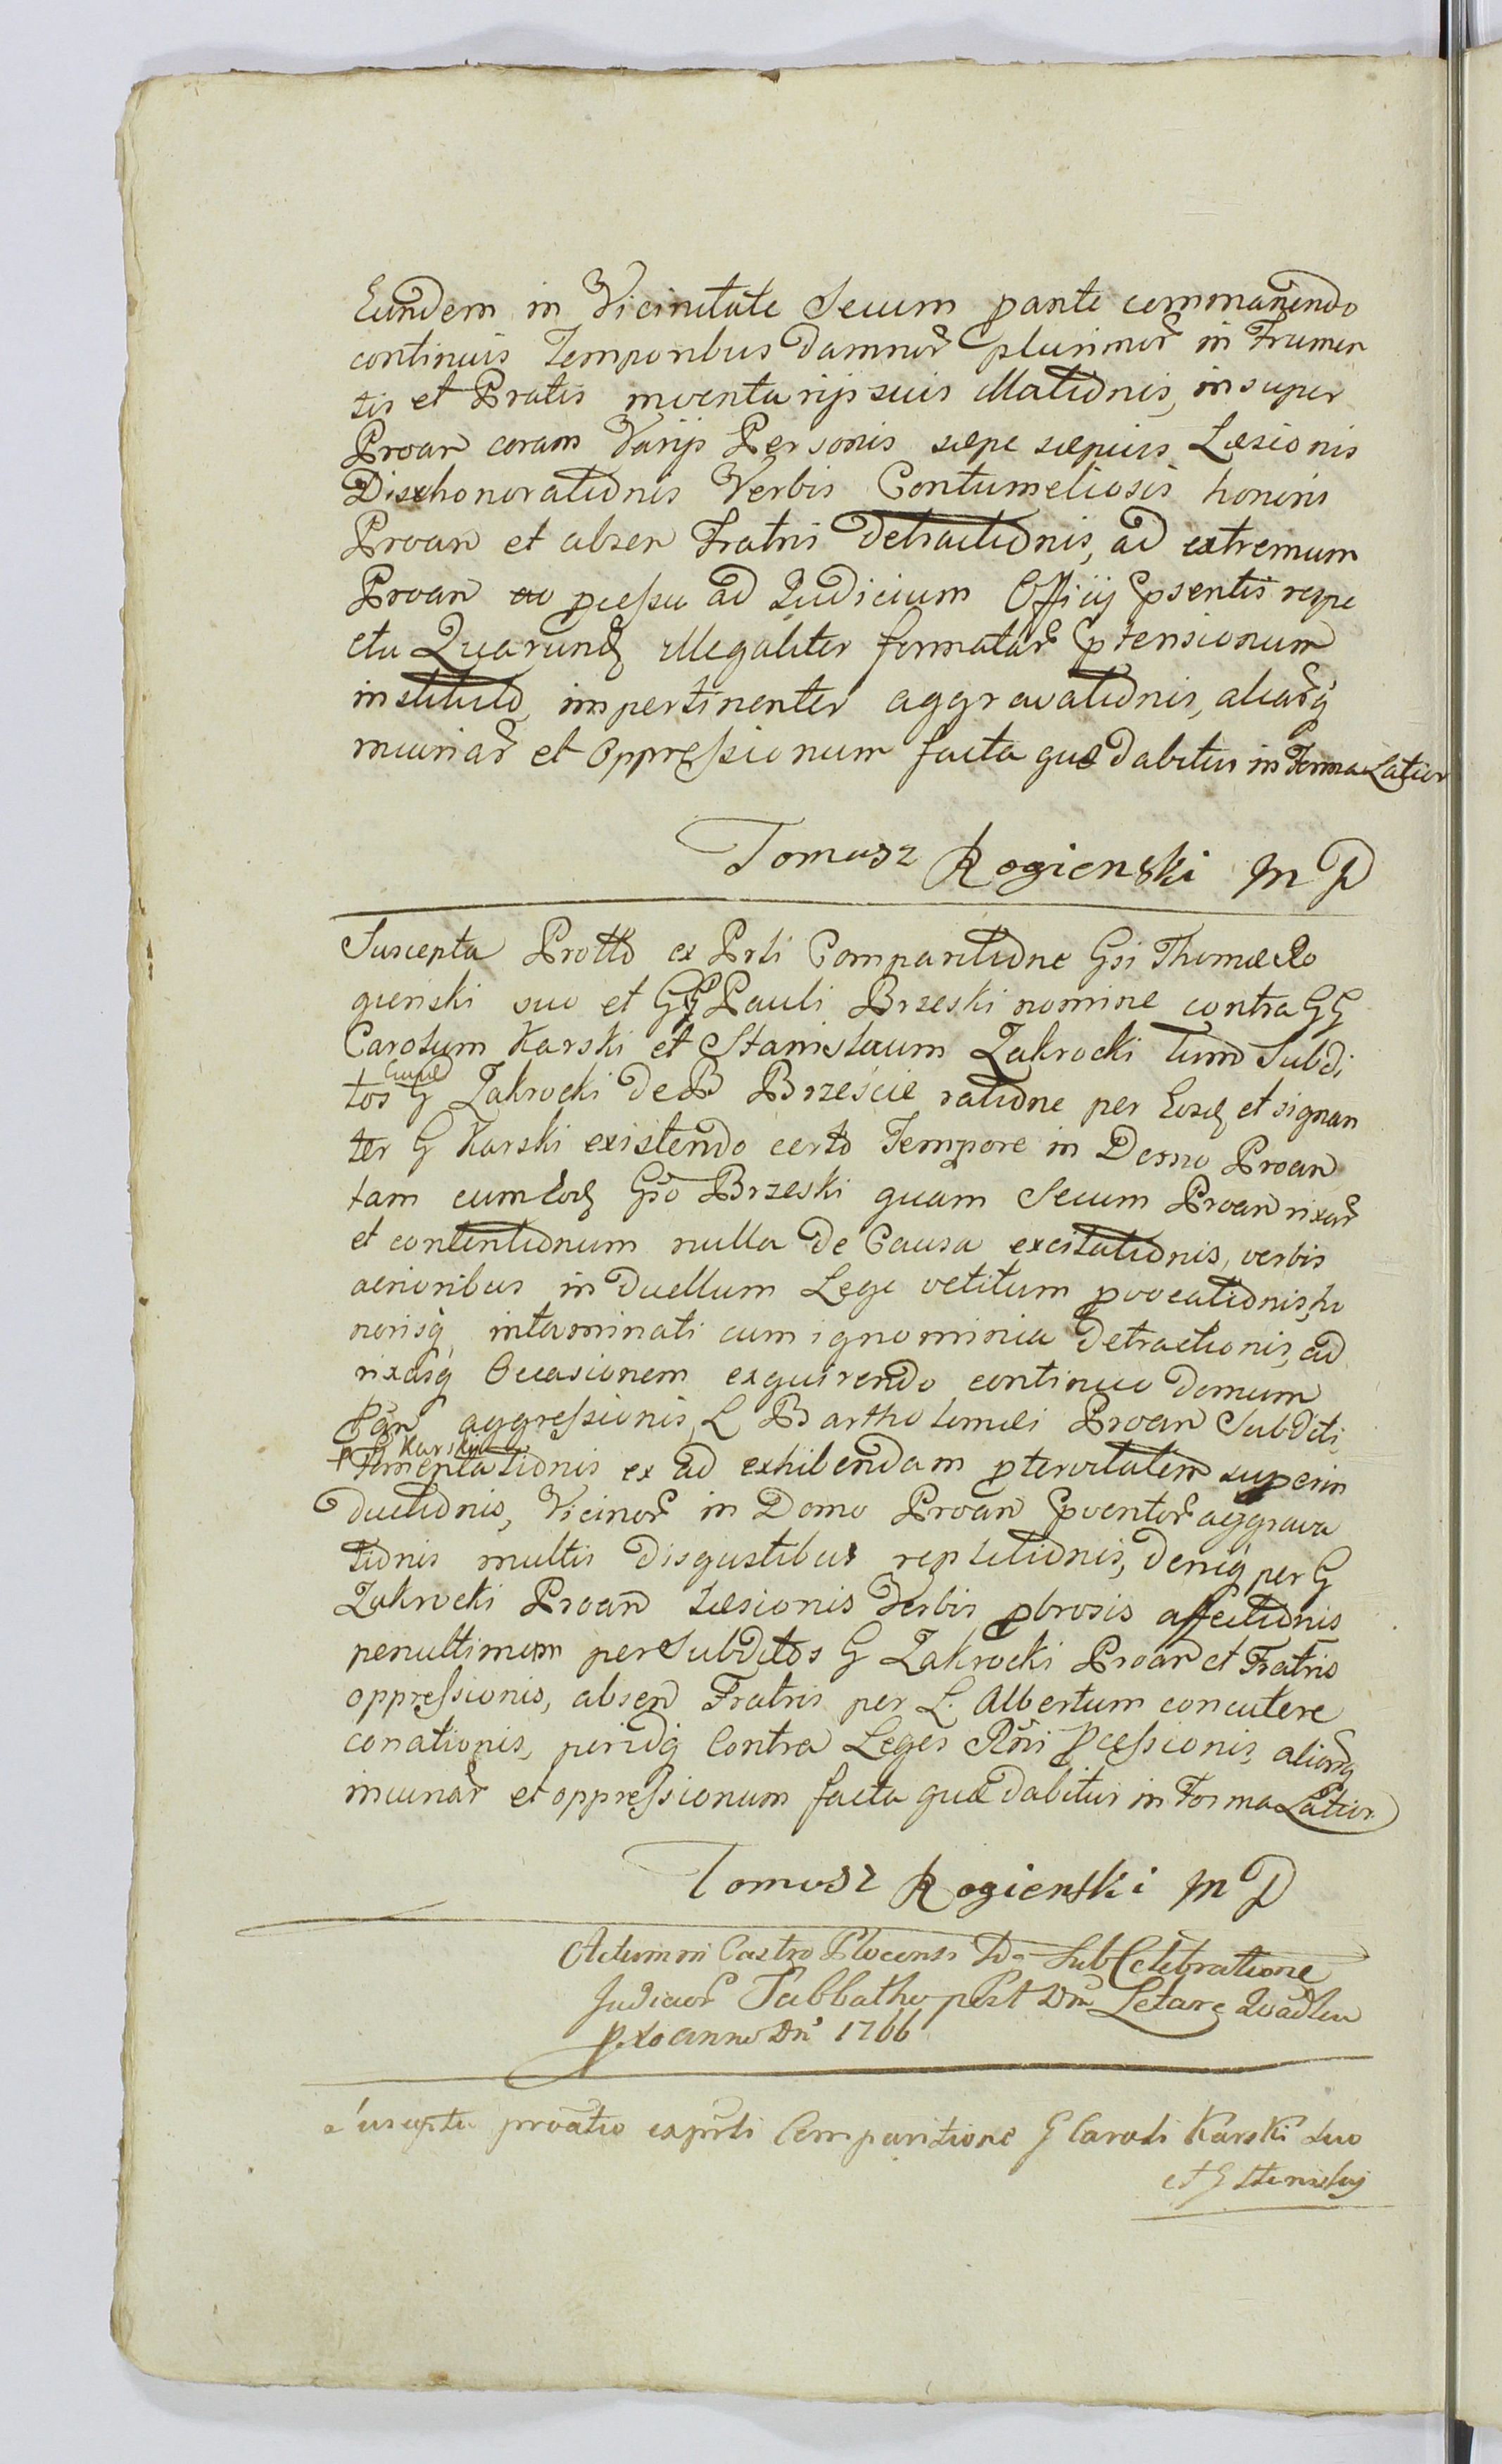 Eundem in Vicinitate Secum Proante commanendo
continuis Temporibus damnor plurimor in Frumen
tis et Pratis inventarijs suis illationis, insuper
Proan coram Varijs Personis sæpe sæpius Læsionis
Dishonorationis Verbis Contumeliosis honoris
Proan et absen Fratris detractionis, ad extremum
Proan pcessu ad Judicium Officij Psentis respe
ctu Quarund illegaliter formatar Ptensionum
instituto, impertinenter aggravationis, aliarq
iniuriar et Oppressionum facta quæ dabitur in Forma Latior
Tomasz Rogienski mP
Suscepta Protto ex Prti Comparitione Gsi Thomæ Ro
gienski suo et G Pauli Brzeski nomine contra GG
Carolum Karski et Stanislaum Zakrocki tum Subdi
tos G Zakrocki de B Brzescie ratione per Eosd et signan
ter G Karski existendo certo Tempore in Domo Proan
tam cum Eod Gso Brzeski quam Secum Proan rixar
et contentionum nulla de Causa excitationis, verbis
acrioribus in duellum Lege vetitum pvocationis, ho
norisq intaminati cum ignominia detractionis, ad
rixasq Occasionem exquirendo continuo domum
Pan aggressionis, L Bartholomæi Proan Subditi
G Karski
ex ad exhibendam ptervitatem superin
ductionis, Vicinor in Domo Proan Pventor aggrava
tionis multis disgustibus repletionis, deniq per G
Zakrocki Proan Læsionis Verbis pbrosis affectionis
penultimum per Subditos G Zakrocki Proan et Fratris
oppressionis, absen Fratris per L. Albertum concutere
conationis, perindq Contra Leges Rni Pcessionis, aliarq
iniuriar et oppressionum facta quæ dabitur in Forma Latior
Tomasz Rogienski mP
Actum in Castro Plocensi Sub Celebratione
Judicior Sabbatho post Dm Letare Quadlem
pxo anno Dni 1766
Suscepta proatio ex prti Comparitione G Caroli Karski suo
et G Stanislai